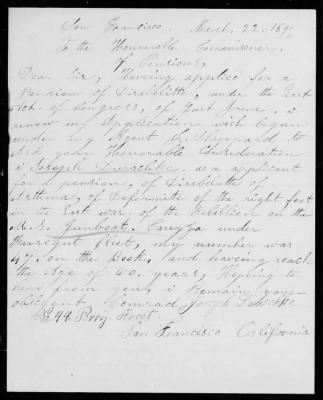 San Francisco. March. 22. 189
To the Honourable Commissioner.
Of Pensions,
Dear Sir, Haveing applied for a
Pension of Disability, under the Last
Act. of Congress, of Last June. i
renew my Application with
under my Agent Sheppard to
ask your Honorable Consideration
i Joseph as a applicant
for a pension, of Disability of
Asthma, of Deformite of the right foot
in the Last war. of the Rebellion on the
U. S. Gunboat. Cayuga under
Farregut fleet, my number was
47. on the book, and haveing reach
the Age of 40. years, Hopeing to
here from you, i Remain your
obedient Comrad Joseph
44 Street.
San Francisco California